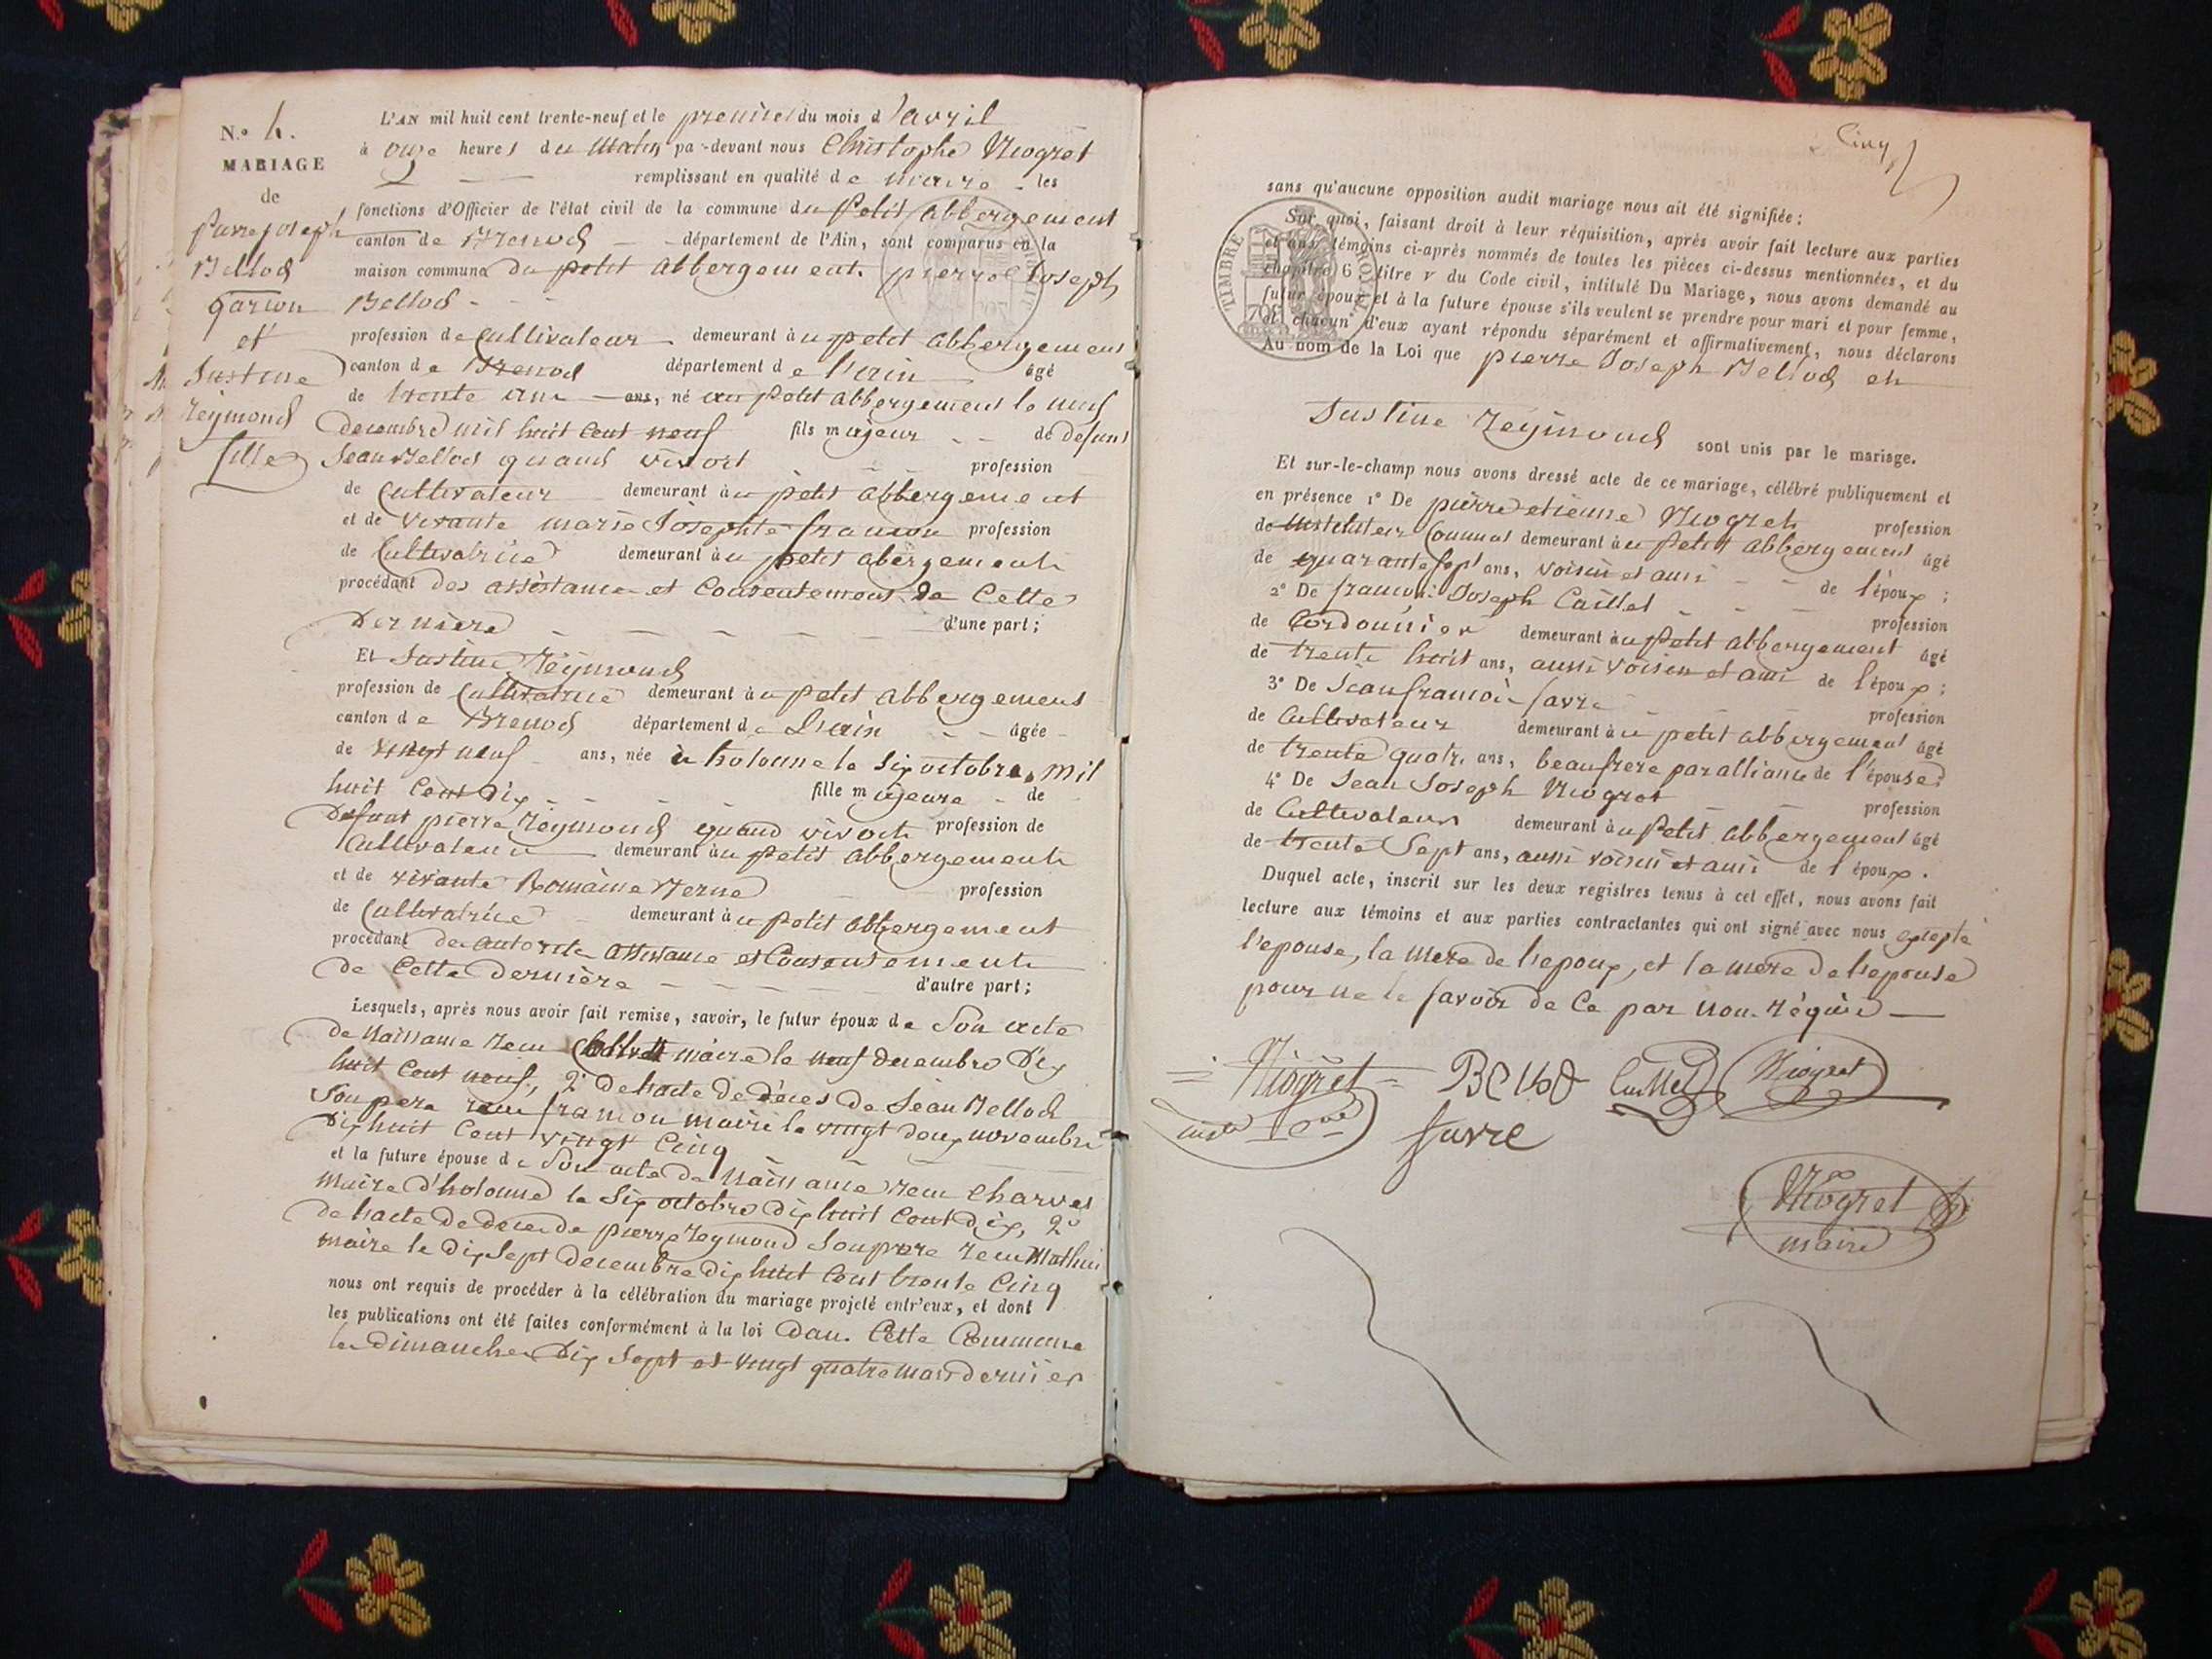 N.º 4.
MARIAGE
de
pierre joseph
Bellod
garcon
et
Justine
Reymond
fille
L'AN mil huit cent trente-neuf et le premier du mois d'avril
à onze heures du matin par-devant nous Christophe Niogret
remplissant en qualité de maire les
fonctions d'Officier de l'état civil de la commune du petit abbergement
canton de Brenod département de l'Ain, sont comparus en la
maison commune du petit abbergement. pierre Joseph
Bellod
profession de Cultivateur demeurant au petit abbergement
canton de Brenod département de l'ain âgé
de trente ans, né au petit abbergement le neuf
decembre mil huit cent neuf fils majeur de defunt
Jean Bellod quand vivoit profession
de Cultivateur demeurant au petit abbergement
et de vivante marie Josephte francon profession
de Cultivatrice demeurant au petit abergement
procédant des assistance et Consentement de Cette
Derniere d'une part;
Et Justine Reymond
profession de Cultivatrice demeurant au petit abbergement
canton de Brenod département de L'ain âgée
de vingt neuf ans, née à hotonne le six octobre mil
huit Cent dix fille majeure de
Defunt pierre Reymond quand vivoit profession de
Cultivateur demeurant au petit abbergement
et de vivante Romaine profession
de Cultivatrice demeurant au petit abbergement
procédant de autorité assistance et Consentement
de Cette derniére d'autre part;
Lesquels, après nous avoir fait remise, savoir, le futur époux de Son acte
de Naissance recu maire le neuf decembre Dix
huit Cent neuf, 2º de lacte de déces de Jean Bellod
Son pere recu francon maire le vingt deux novembre
Dix huit Cent vingt Cinq
et la future épouse de Son acte de Naissance recu Charvet
Maire d'hotonne le Six octobre dix huit Cent dix, 2º
de lacte de deces de pierre Reymond Son pere recu
maire le dix Sept decembre dix huit Cent trente Cinq
nous ont requis de procéder à la célébration du mariage projeté entr'eux, et dont
les publications ont été faites conformément à la loi dans Cette Commune
les dimanches Dix Sept et vingt quatre mars dernier
Cinq
sans qu'aucune opposition audit mariage nous ait été signifiée:
Sur quoi, faisant droit à leur réquisition, après avoir fait lecture aux parties
et aux témoins ci-après nommés de toutes les pièces ci-dessus mentionnées, et du
chapitre 6 titre v du Code civil, intitulé Du Mariage, nous avons demandé au
futur époux et à la future épouse s'ils veulent se prendre pour mari et pour femme,
et chacun d'eux ayant répondu séparément et affirmativement, nous déclarons
Au nom de la Loi que pierre Joseph Bellod et
TIMBRE ROYAL
70c
Justine Reymond sont unis par le mariage.
Et sur-le-champ nous avons dressé acte de ce mariage, célébré publiquement et
en présence 1º De pierre etienne Niogret profession
de instituteur Communal demeurant au petit abbergement âgé
de quarante sept ans, voisin et ami de l'époux;
2º De francois Joseph Caillet profession
de Cordonnier demeurant au petit abbergement âgé
de trente huit ans, aussi voisin et ami de l'époux;
3º De Jean francois favre profession
de Cultivateur demeurant au petit abbergement âgé
de trente quatre ans, beaufrere par alliance de l'épouse
4º De Jean Joseph Niogret profession
de Cultivateur demeurant au petit abbergement âgé
de trente Sept ans, aussi voisin et ami de l'époux.
Duquel acte, inscrit sur les deux registres tenus à cet effet, nous avons fait
lecture aux témoins et aux parties contractantes qui ont signé avec nous excepté
l'epouse, la mere de l'epoux, et la mere de l'epouse
pour ne le savoir de Ce par nou. réquis
Niogret Bellod Caillet Niogret
favre
Niogret
maire